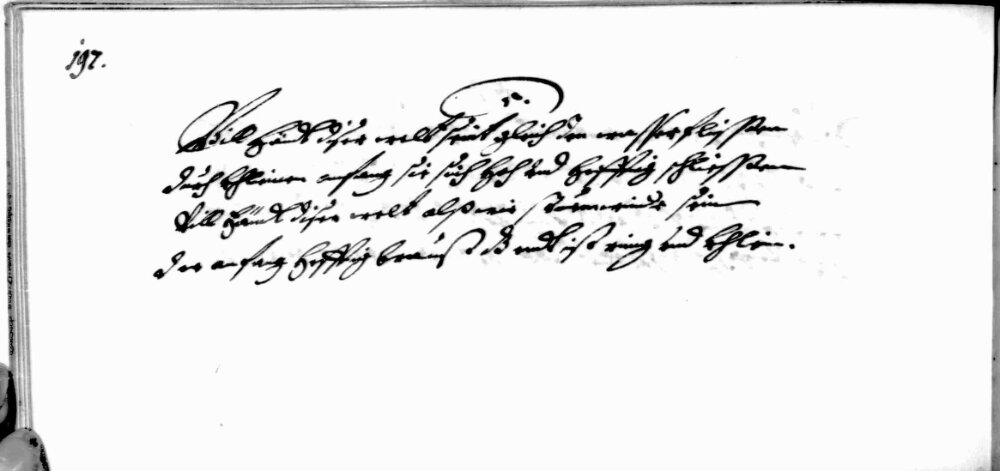 197.
5.
Vill händl diser welt seint gleich den wasserflissen
durch khleinen anfang sie sich hoch und hefftig schliessen
Vill händl diser welt alß wie sturmwinde sein
der anfang hefftig braust daß endt ist ring und khlein.